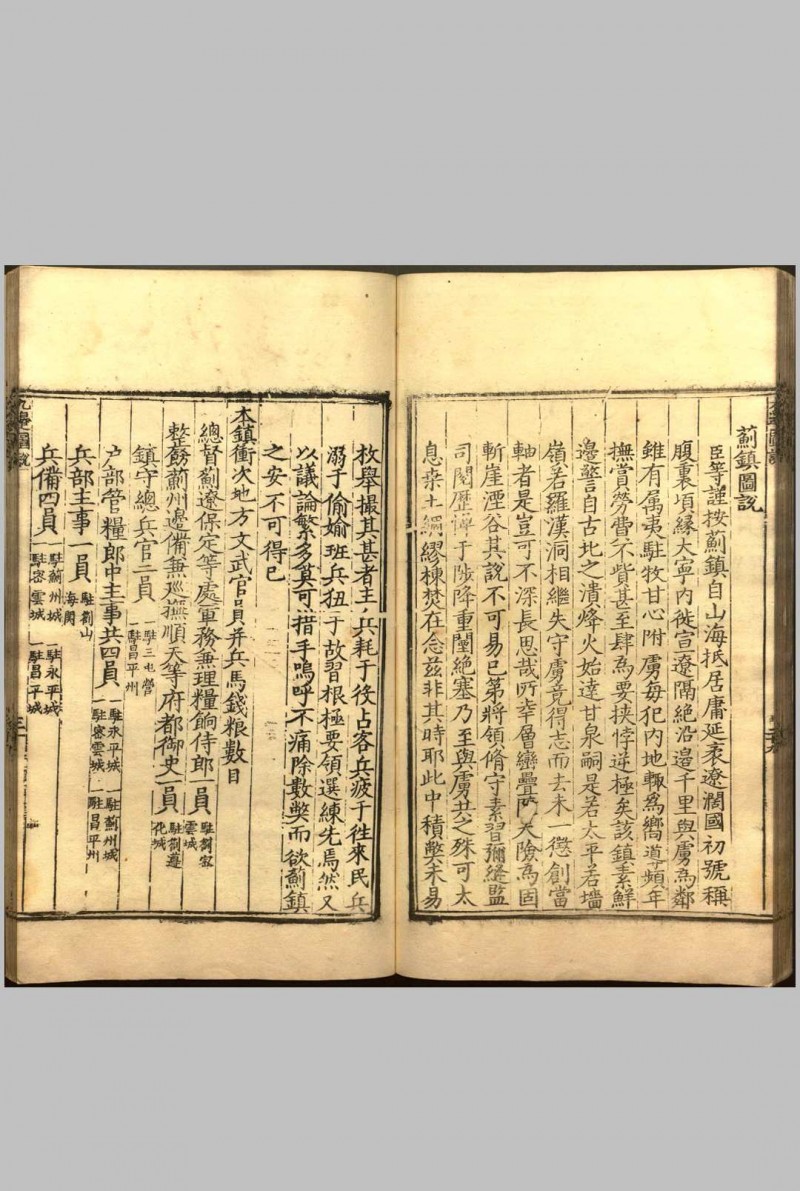 薊鎮圖説
臣等謹按薊鎮自山海抵居庸延袤遼濶國初號稱
腹裏頃緣大寧内徙宣遼隔絶沿邊千里與虜為鄰
雖有属夷駐牧甘心附虜每犯内地輙為嚮導頻年
撫賞勞費不貲甚至肆為要挾悖逆極矣該鎮素鮮
邊警自古北之潰烽火始達甘泉嗣是若太平若墻
嶺若羅漢洞相繼失守虜竟得志而去未一懲創當
軸者是豈可不深長思哉所幸層巒疊 天險為固
斬崖湮谷其説不可易已第將領脩守素習彌縫監
司閱歷憚于陟降重關絶塞乃至與虜共之殊可太
息桑土綢繆棟焚在念兹非其時耶此中積獘未易
枚舉撮其甚者主兵耗于役占客兵疲于往來民兵
溺于偷媮班兵狃于故習根極要領選練先焉然又
以議論繁多莫可措手嗚呼不痛除數獘而欲薊鎮
之安不可得已
本鎮衝次地方文武官員并兵馬錢粮數目
總督薊遼保定等處軍務兼理糧餉侍郎一員駐劄密雲城
整飭薊州邊備兼巡撫順天等府都御史一員駐劄遵化城
鎮守總兵官二員一駐三屯營一駐昌平州
户部管糧郎中主事共四員一駐永平城一駐密雲城一駐薊州城一駐昌平州
兵部主事一員駐劄山海関
兵備四員一駐薊州城一駐密雲城一駐永平城一駐昌平城
九邊圖説